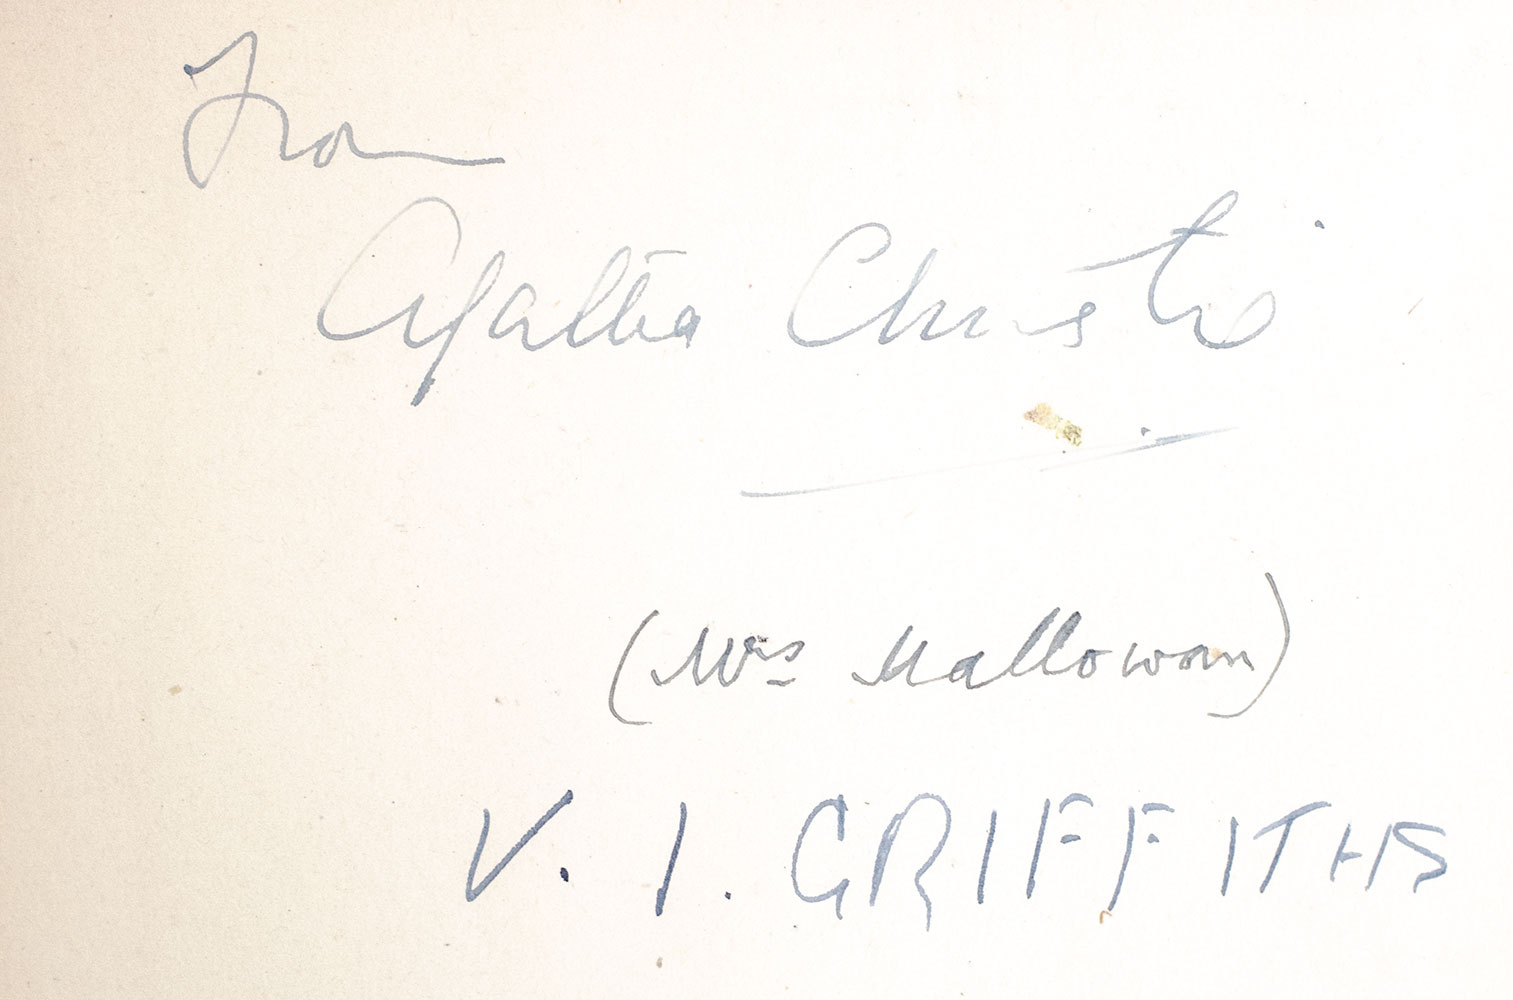 From
Agatha Christie
(Mrs Mallowan)
V. I. GRIFFITHS